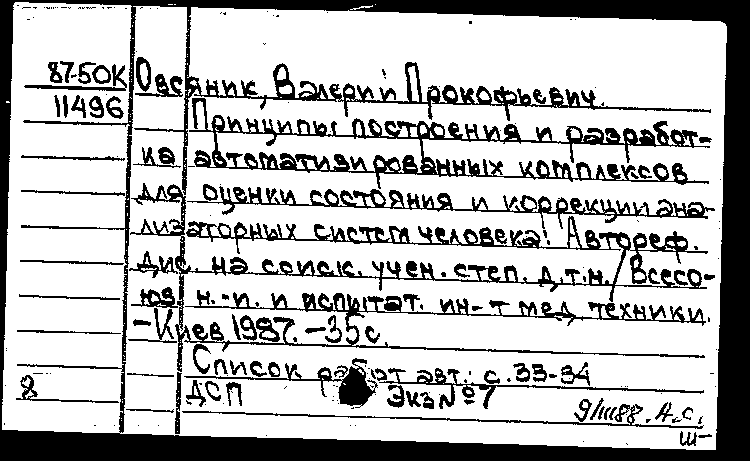 87-50К Овсяник, Валерий Прокофьевич.
11496
Принципы построения и разработ-
ка автоматизированных комплексов
для оценки состояния и коррекции ана-
лизаторных систем человека: Автореф.
дис. на соиск. учен. степ. д.т.н. / Всесо-
юз. н.-и. и испытат. ин-т мед. техники.
-Киев, 1987. -35с.
Список работ авт.: с.33-34
8 ДСП Экз № 7
9/III88. А.С.
Ш-